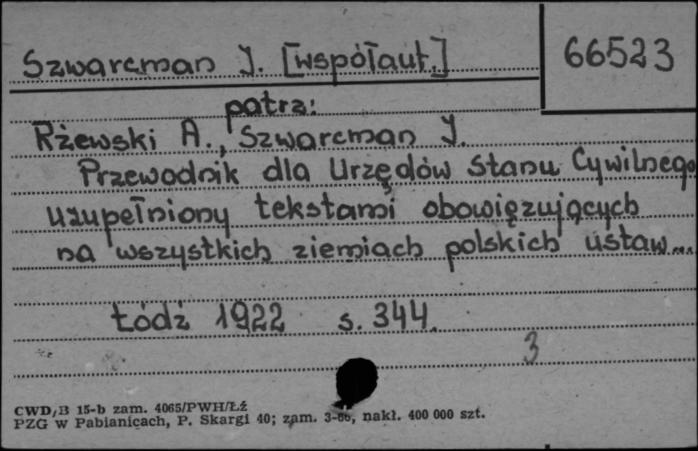 Szwarcman J. [współaut.]
66523
patrz:
Rżewski A., Szwarcman J.
Przewodnik dla Urzędów Stanu Cywilnego
uzupełniony tekstami obowięzujących
na wszystkich ziemiach polskich ustaw...
Łódź 1922 s. 344.
3
CWD/B 15-b zam. 4065/PWH/Łź
PZG w Pabianicach, P. Skargi 40; zam. nakł. 400 000 szt.